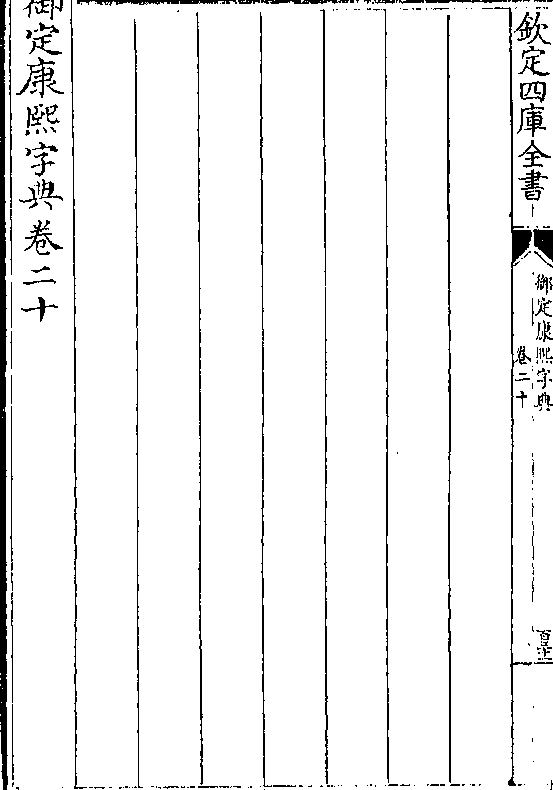 欽定四庫全書
御定康熙字典
卷二十
御定康熙字典卷二十